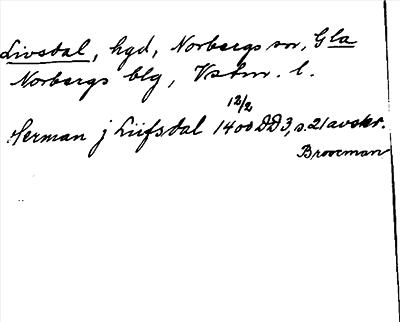 Livsdal, hgd, Norbergs sn, Gla
Norbergs blg, Vstm. l.
12/2
Herman j Liifsdal 1400 DD3, s. 21 avskr.
Brooeman